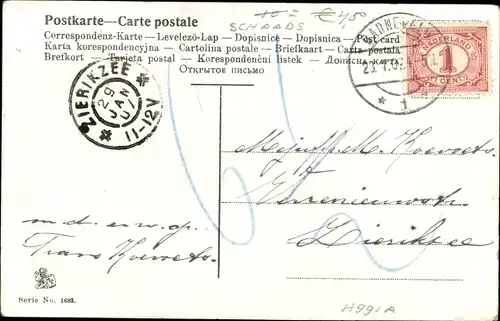 Postkarte—Carte postale
Correspondenz-Karte — Levelező-Lap — Dopisnice — Dopisnica — Post card
Karta korespondencyjna — Cartolina postale — Briefkaart — Carta postala
Brefkort — Tarjeta postal — Korespondenční listek — Дописна карта
Открытое письмо
10 = € 4,50
SCHAADS
NEDERLAND
1
CENT
ZIERIKZEE
29
JAN
07
11-12V
1
Mejuf. M. Koevoets
Verrenieuwstr.
Zierikzee
m. d. en v. op.
Frans Koevoets
Serie No. 1683.
H991A